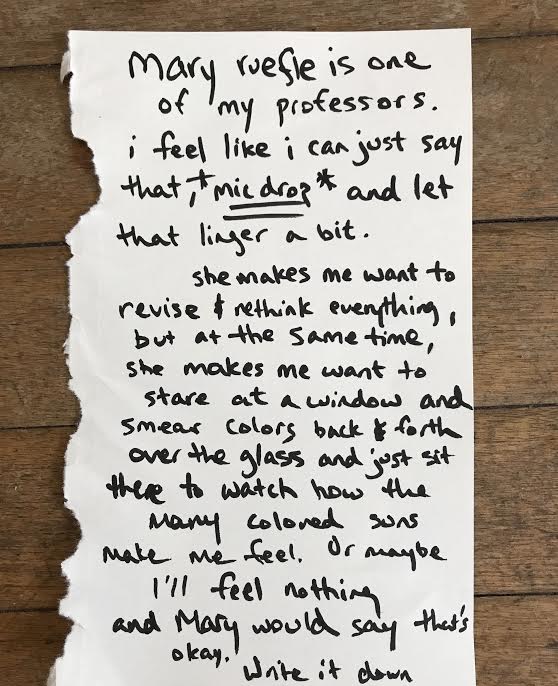 Mary ruefle is one
of my professors.
i feel like i can just say
that, *mic drop* and let
that linger a bit.
she makes me want to
revise & rethink everything,
but at the same time,
she makes me want to
stare at a window and
smear colors back & forth
over the glass and just sit
there to watch how the
many colored suns
make me feel. Or maybe
I'll feel nothing
and Mary would say that's
okay.
Write it down